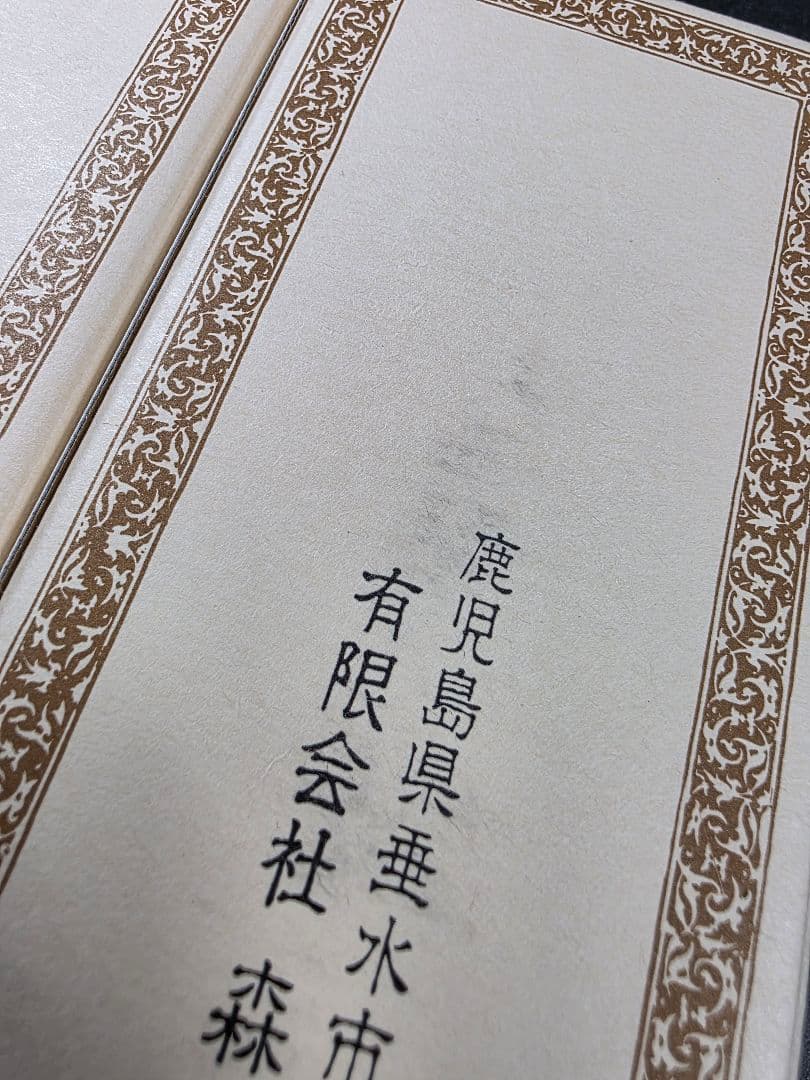 鹿児島県垂水市
有限会社 森